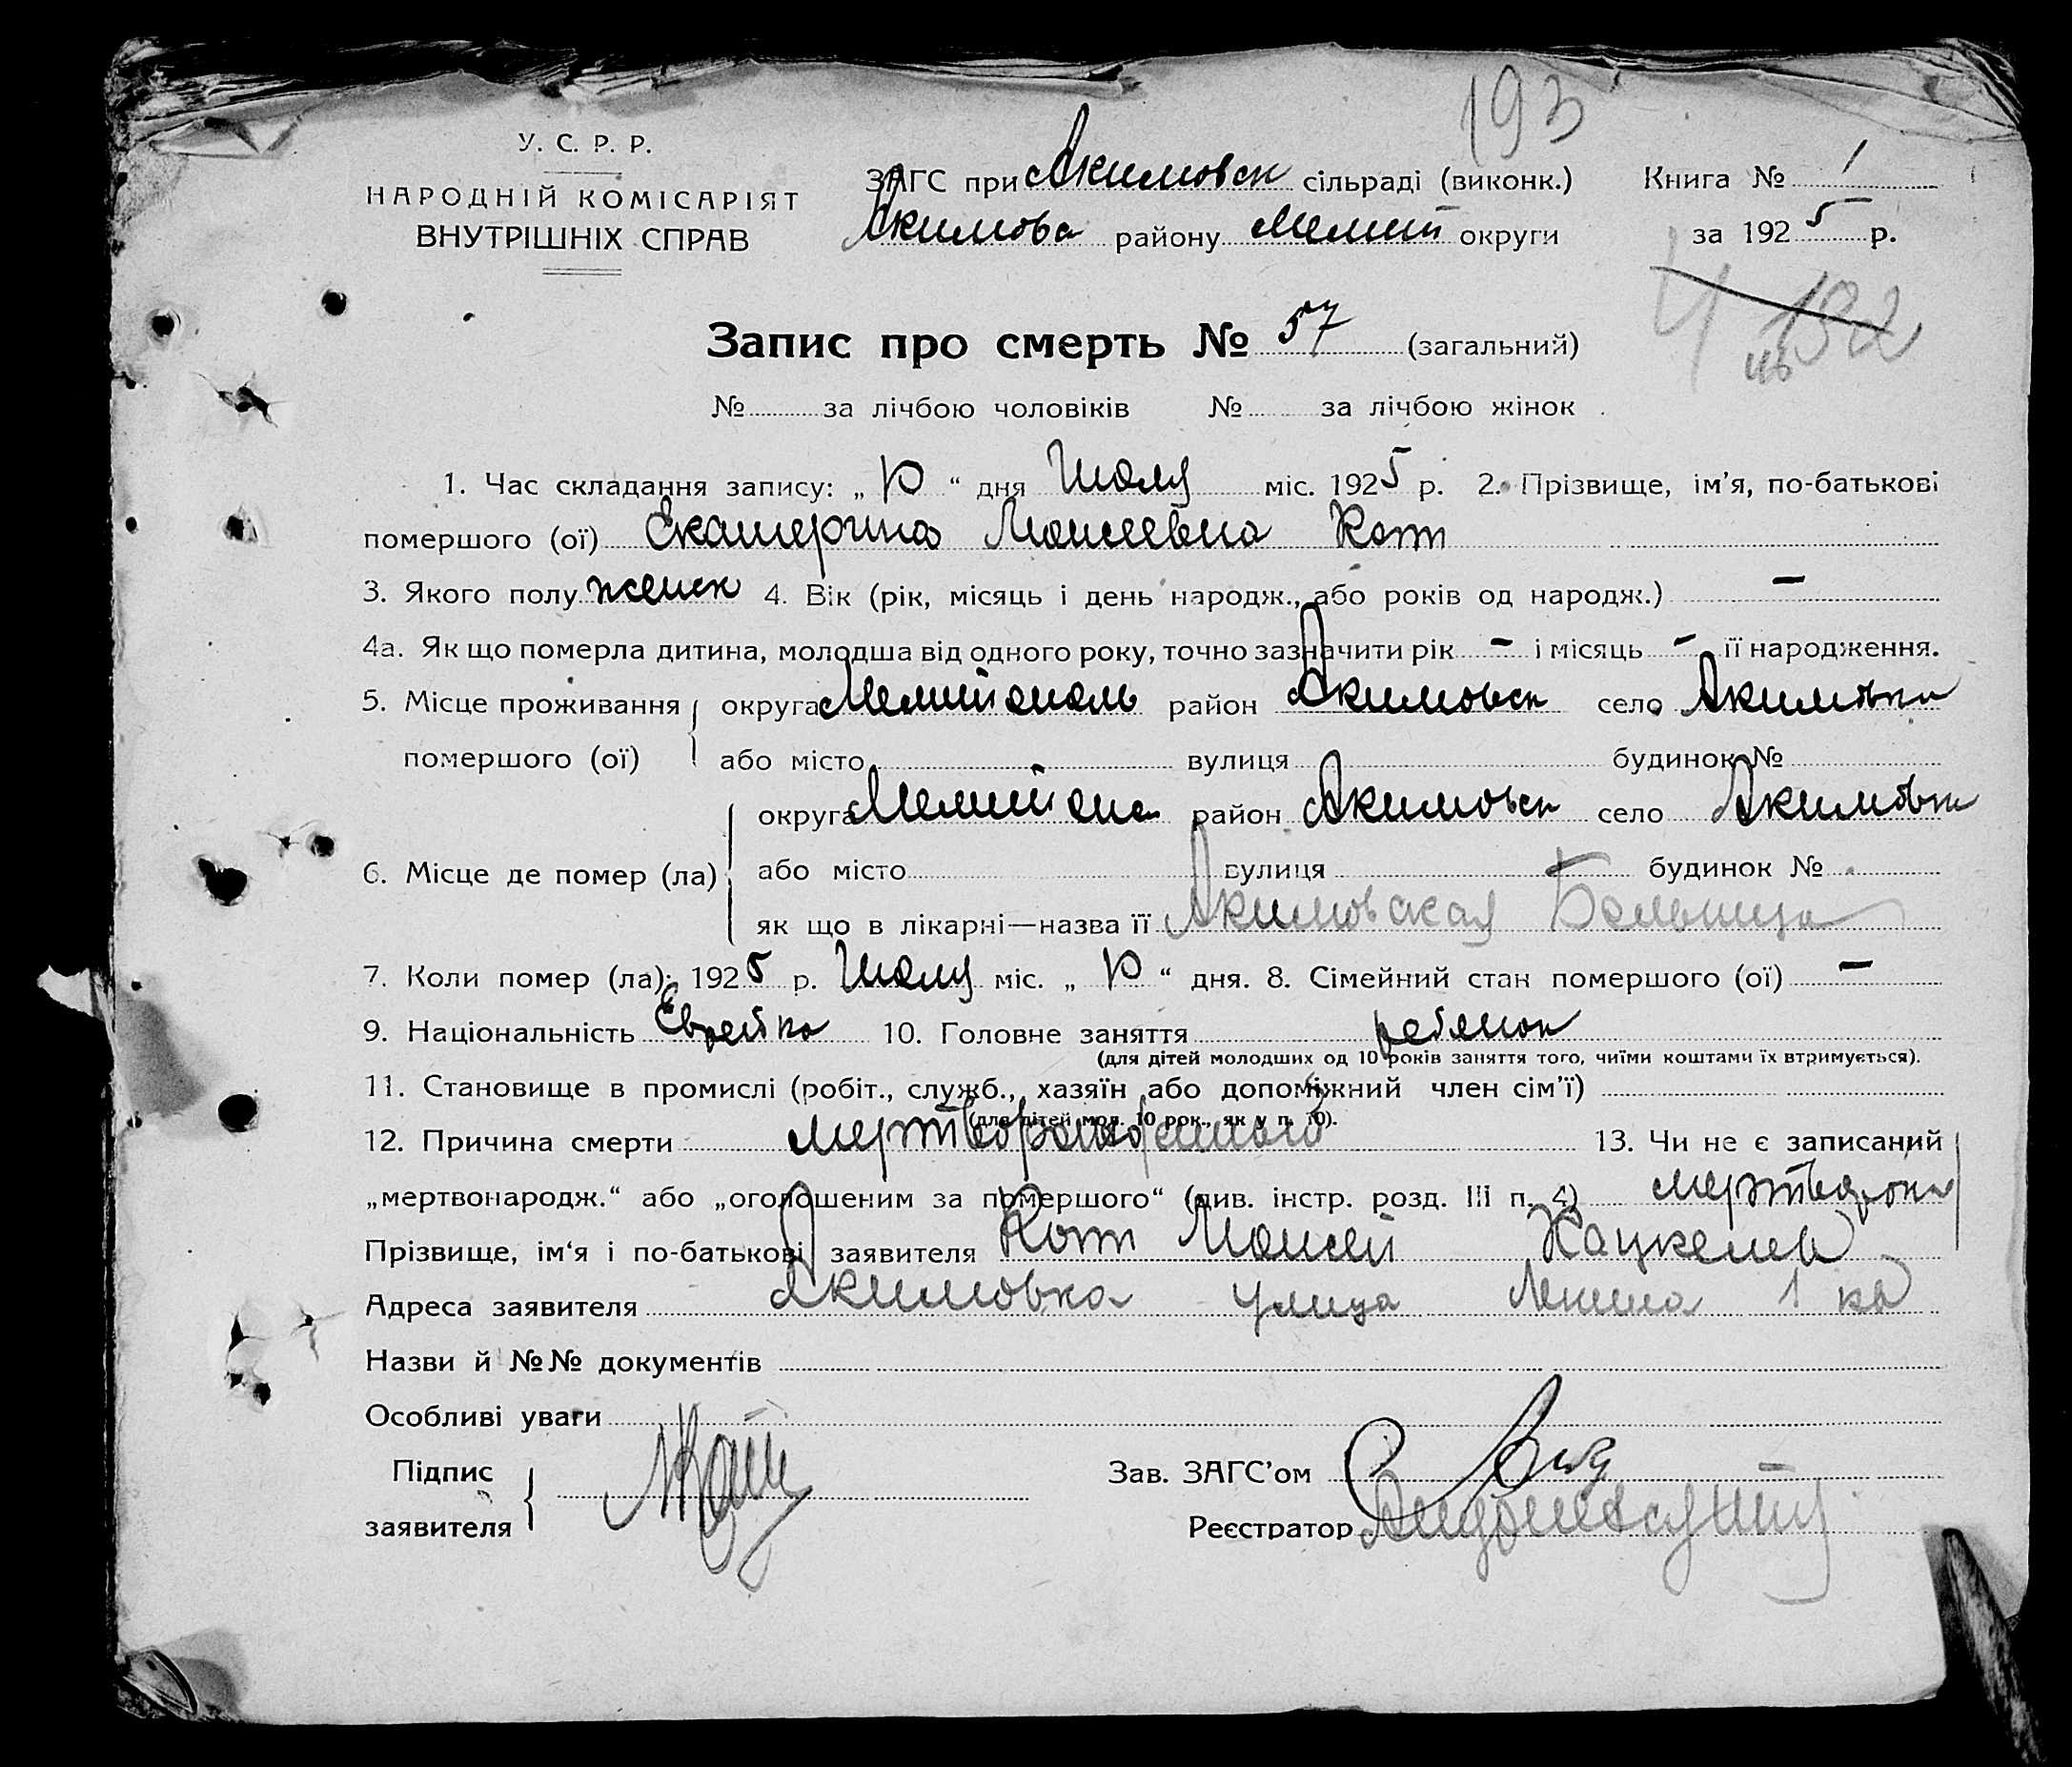 193
У. С. Р. Р.
НАРОДНІЙ КОМІСАРІЯТ
ВНУТРІШНІХ СПРАВ
ЗАГС при Акимовск сільраді (виконк.)
Акимова району Мелит округи
Книга № 1
за 1925 р.
Запис про смерть № 57 (загальний)
132
№ за лічбою чоловіків № за лічбою жінок
1. Час складання запису: „ 10 “ дня Июля міс. 1925 р. 2. Прізвище, ім’я, по-батькові
помершого (ої) Екатерина Моисеевна Кот
3. Якого полу женск 4. Вік (рік, місяць і день народж., або років од народж.) —
4а. Як що померла дитина, молодша від одного року, точно зазначити рік – і місяць – її народження.
5. Місце проживання округа Мелитополь район Акимовск село Акимовка
помершого (ої) або місто вулиця будинок №
округа Мелитопол район Акимовск село Акимовк
6. Місце де помер (ла) або місто вулиця будинок №
як що в лікарні—назва її Акимовская Больница
7. Коли помер (ла): 1925 р. Июля міс. „ 10 “ дня. 8. Сімейний стан помершого (ої) —
9. Національність Еврейка 10. Головне заняття ребенок
(для дітей молодших од 10 років заняття того, чиїми коштами їх втримується).
11. Становище в промислі (робіт., служб., хазяїн або допоміжний член сім’ї)
(для дітей мол. 10 рок., як у п. 10).
12. Причина смерти 13. Чи не є записаний
„мертвонародж.“ або „оголошеним за помершого“ (див. інстр. розд. III п. 4)
Прізвище, ім‘я і по-батькові заявителя Кот Моисей Хацкелев
Адреса заявителя Акимовка улица Ленина 1 кв
Назви й №№ документів
Особливі уваги
Підпис
заявителя МКот
Зав. ЗАГС’ом
Реєстратор